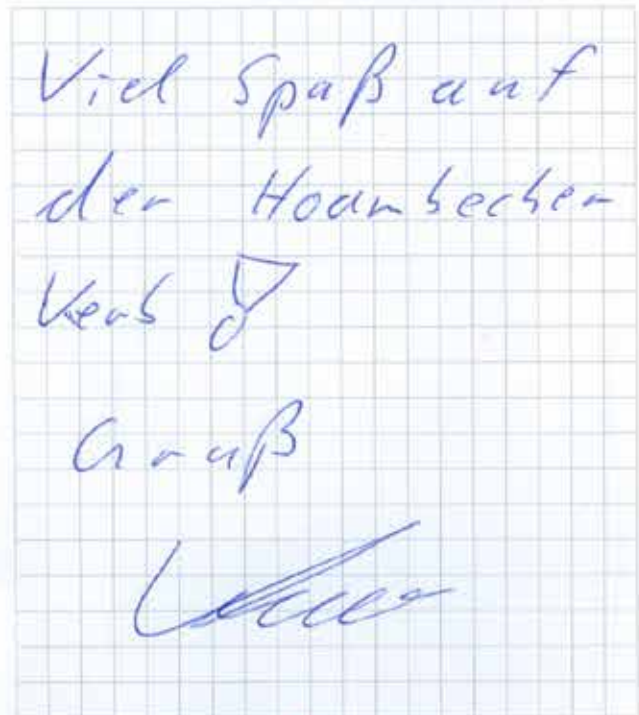 Viel Spaß auf
der Hoambecher
Kerb !
Gruß